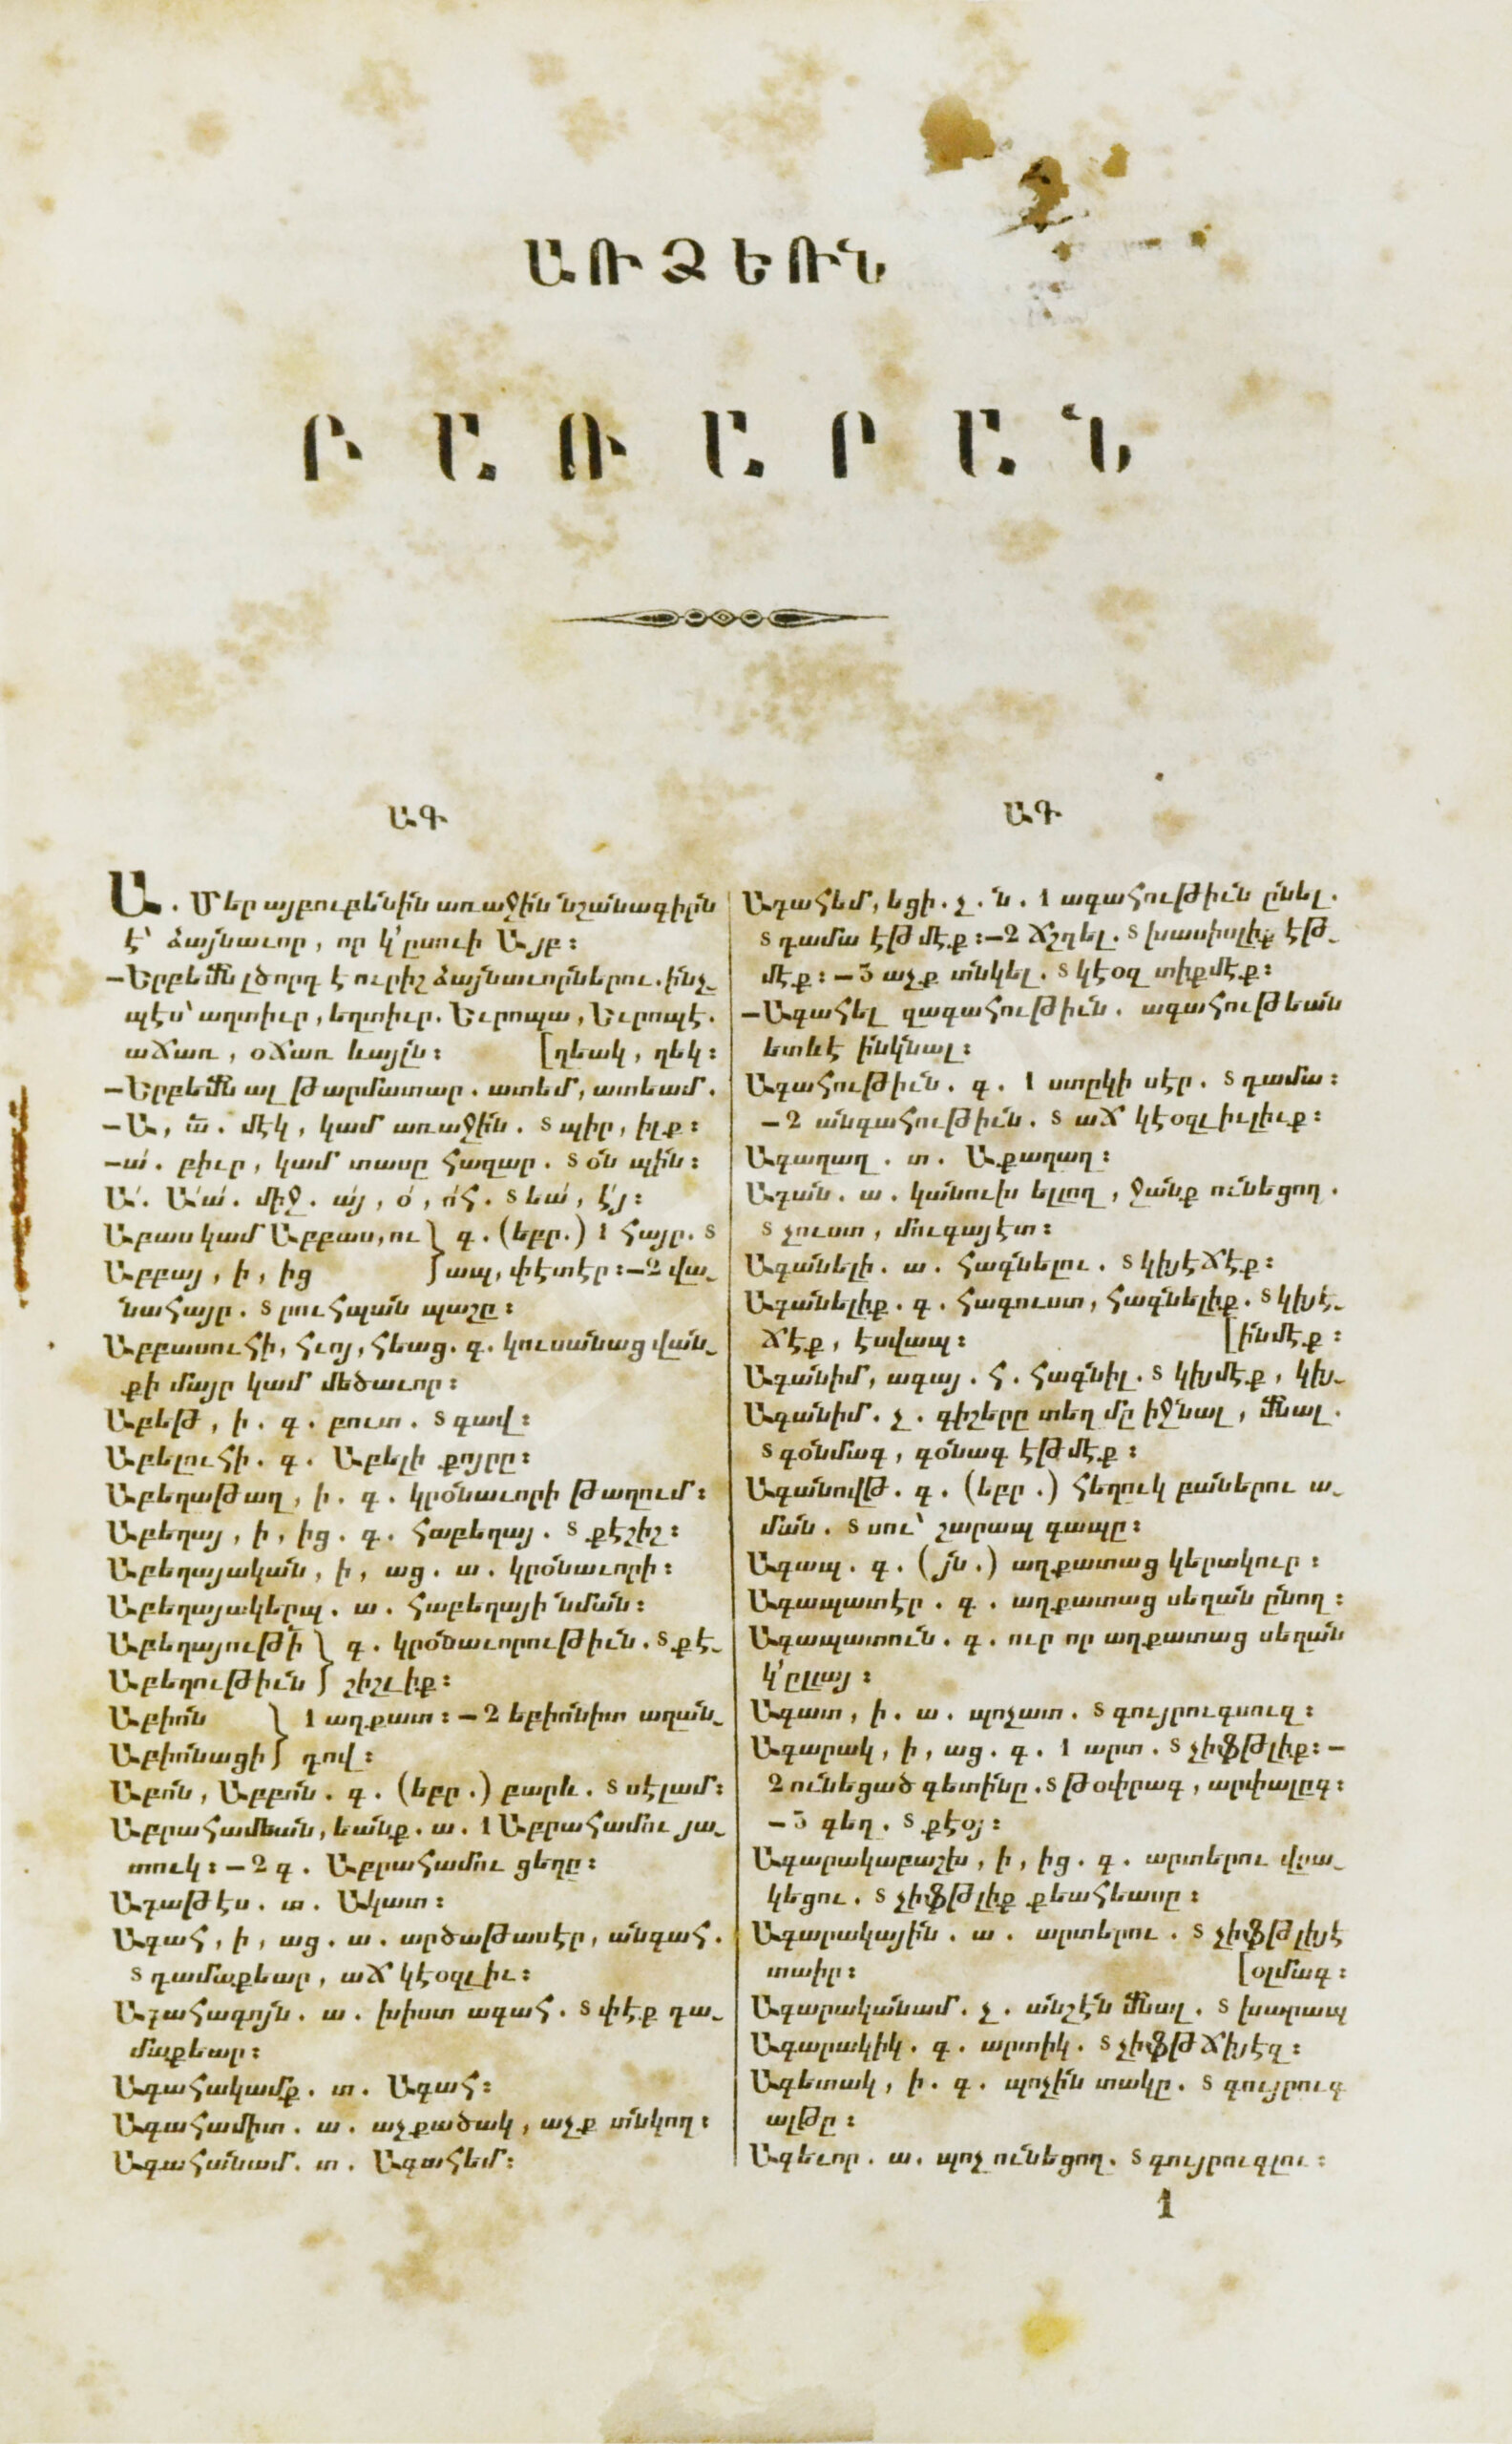 ԱՌՁԵՌՆ
ԲԱՌԱՐԱՆ
ԱԳ
Ա. Մեր այբուբենին առաջին նշանագիրն
է՝ ձայնաւոր, որ կ՚ըսուի Այբ։
—Երբեմն լծորդ է ուրիշ ձայնաւորներու. ինչ֊
պէս՝ աղտիւր, եղտիւր. Եւրոպա, Եւրոպէ.
աճառ, օճառ ևայլն։ [ղեակ, ղեկ։
—Երբեմն ալ թարմատար. ատեմ, ատեամ.
—Ա, ա̅. մէկ, կամ առաջին. Տ պիր, իլք։
—ա՛. բիւր, կամ տասը հազար. Տ օն պին։
Ա՛. Ա՛ա՛. միջ. ա՛յ, օ՛, ո՛հ. Տ եա՛, է՛յ։
Աբաս կամ Աբբաս, ու } գ. (եբր.) 1 Հայր. Տ
Աբբայ, ի, ից } ապ, փէտէր։—2 վա֊
նահայր. Տ րուհպան պաշը։
Աբբասուհի, հւոյ, հեաց. գ. կուսանաց վան֊
քի մայր կամ մեծաւոր։
Աբեթ, ի. գ. բուտ. Տ գավ։
Աբելուհի. գ. Աբելի քոյրը։
Աբեղաթաղ, ի. գ. կրօնաւորի թաղում։
Աբեղայ, ի, ից. գ. հաբեղայ. Տ քէշիշ։
Աբեղայական, ի, աց. ա. կրօնաւորի։
Աբեղայակերպ. ա. հաբեղայի նման։
Աբեղայութի } գ. կրօնաւորութիւն. Տ քէ֊
Աբեղութիւն } շիշլիք։
Աբիոն } 1 աղքատ։—2 եբիոնիտ աղան֊
Աբիոնացի } դով։
Աբոն, Աբբոն. գ. (եբր.) բարև. Տ սէլամ։
Աբրահամեան, եանք. ա. 1 Աբրահամու յա֊
տուկ։—2 գ. Աբրահամու ցեղը։
Ագաթէս. տ. Ակատ։
Ագահ, ի, աց. ա. արծաթասէր, անգահ.
Տ դամաքեար, աճ կէօզլիւ։
Ագահագոյն. ա. խիստ ագահ. Տ փէք դա֊
մաքեար։
Ագահակամք. տ. Ագահ։
Ագահամիտ. ա. աչքածակ, աչք տնկող։
Ագահանամ. տ. Ագահեմ։
ԱԳ
Ագահեմ, եցի. չ. ն. 1 ագահութիւն ընել.
Տ դամա էթմէք։—2 ճշդել. Տ խասիսլիք էթ֊
մէք։—3 աչք տնկել. Տ կէօզ տիքմէք։
—Ագահել զագահութիւն. ագահութեան
ետևէ ինկնալ։
Ագահութիւն. գ. 1 ստըկի սէր. Տ դամա։
—2 անգահութիւն. Տ աճ կէօզլիւլիւք։
Ագաղաղ. տ. Աքաղաղ։
Ագան. ա. կանուխ ելլող, ջանք ունեցող.
Տ չուստ, մուգայէտ։
Ագանելի. ա. հագնելու. Տ կիյէճէք։
Ագանելիք. գ. հագուստ, հագնելիք. Տ կիյէ֊
ճէք, էսվապ։ [ինմէք։
Ագանիմ, ագայ. հ. հագնիլ. Տ կիյմէք, կիյ֊
Ագանիմ. չ. գիշերը տեղ մը իջնալ, մնալ.
Տ գօնմագ, գօնագ էթմէք։
Ագանովթ. գ. (եբր.) հեղուկ բաներու ա֊
ման. Տ սու՝ շարապ գապը։
Ագապ. գ. (յն.) աղքատաց կերակուր։
Ագապատէր. գ. աղքատաց սեղան ընող։
Ագապատուն. գ. ուր որ աղքատաց սեղան
կ՚ըլլայ։
Ագատ, ի. ա. պոչատ. Տ գույրուգսուզ։
Ագարակ, ի, աց. գ. 1 արտ. Տ չիֆթլիք։—
2 ունեցած գետինը. Տ թօփրագ, արփալըգ։
—3 գեղ. Տ քէօյ։
Ագարակաբաշխ, ի, ից. գ. արտերու վրա֊
կեցու. Տ չիֆթլիք քեահեասը։
Ագարակային. ա. արտերու. Տ չիֆթլիյէ
տաիր։ [օլմագ։
Ագարականամ. չ. անշէն մնալ. Տ խարապ
Ագարակիկ. գ. արտիկ. Տ չիֆթճիյէզ։
Ագետակ, ի. գ. պոչին տակը. Տ գույրուգ
ալթը։
Ագեւոր. ա. պոչ ունեցող. Տ գույրուգլու։
1